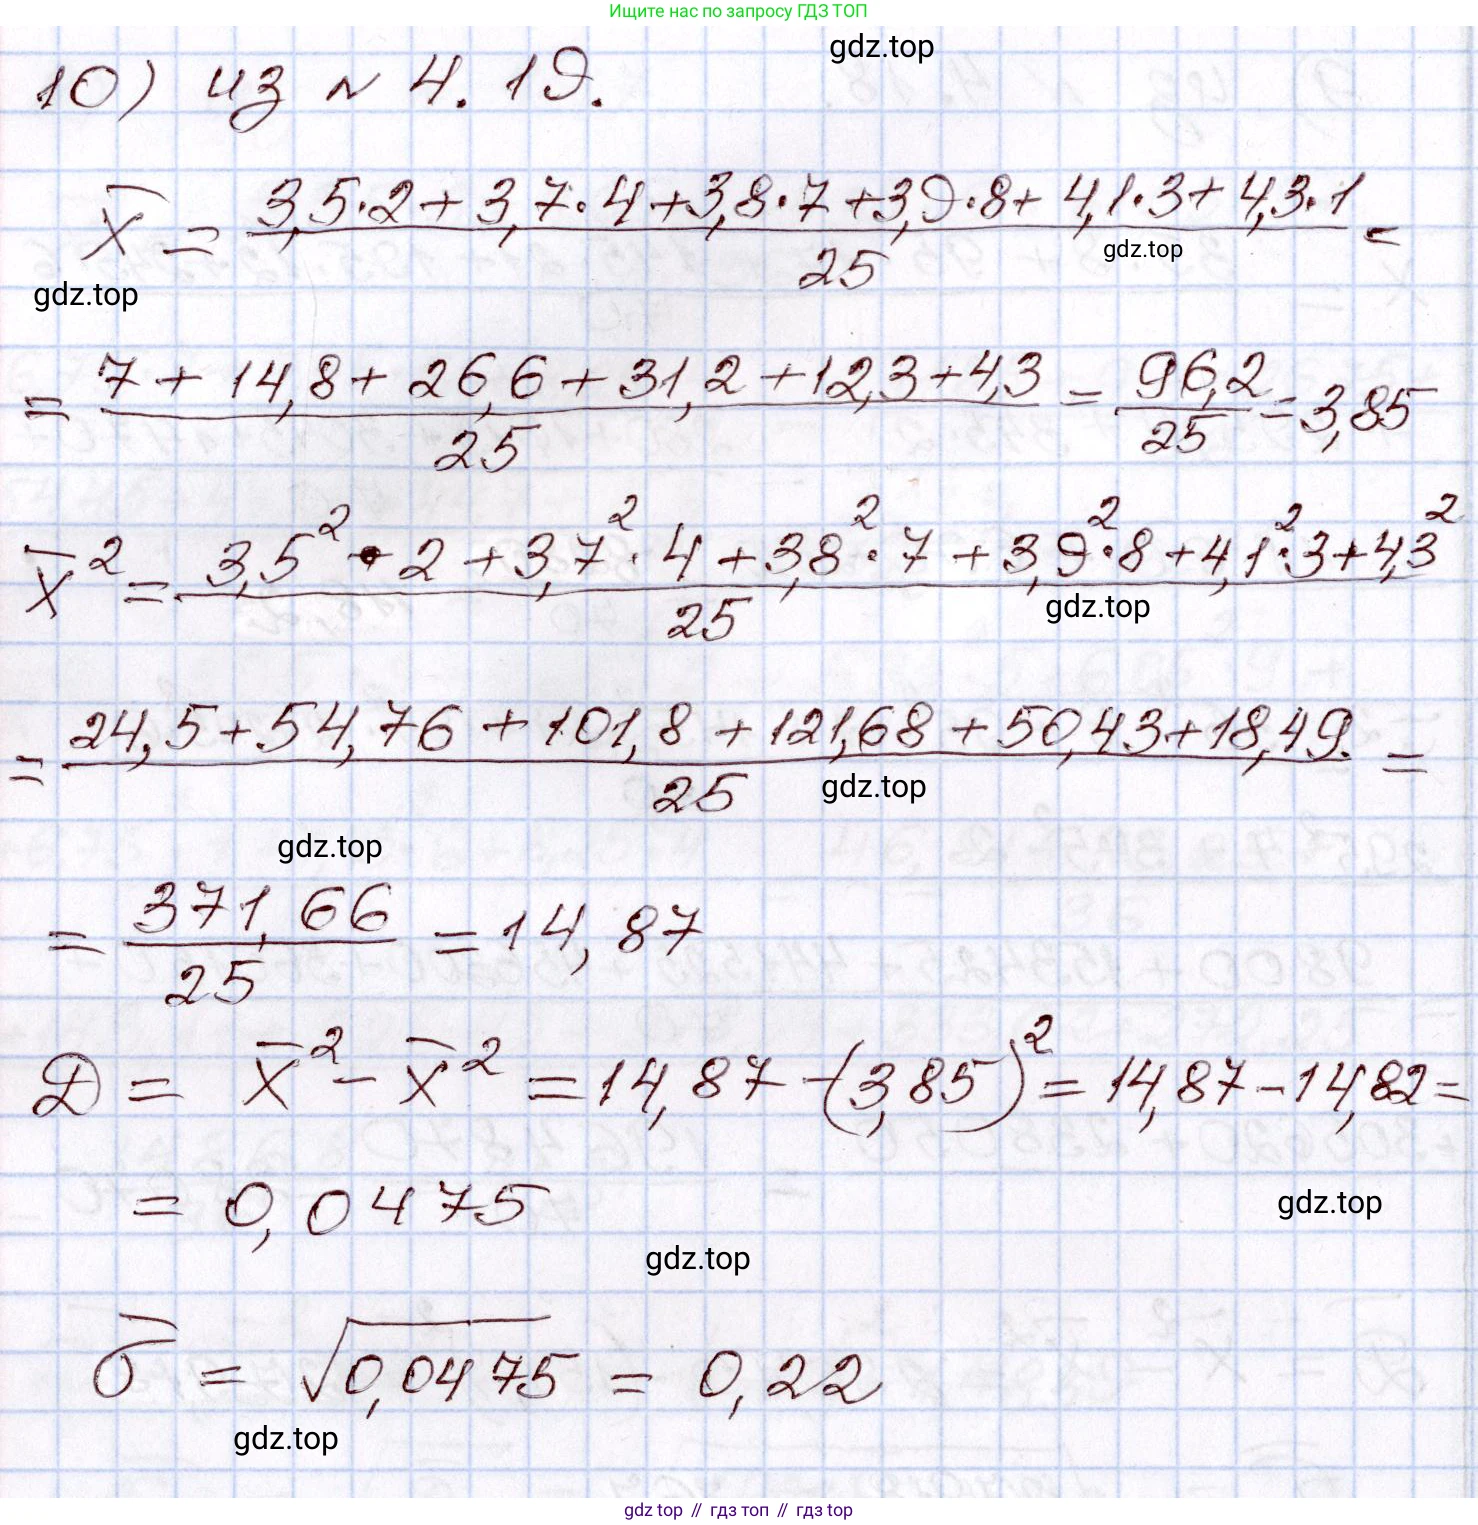 Ищите нас по запросу ГДЗ ТОП
gdz.top
10) из № 4.19.
x̅ = (3,5·2 + 3,7·4 + 3,8·7 + 3,9·8 + 4,1·3 + 4,3·1)/25 =
gdz.top
gdz.top
= (7 + 14,8 + 26,6 + 31,2 + 12,3 + 4,3)/25 = 96,2/25 = 3,85
x̅² = (3,5² · 2 + 3,7² · 4 + 3,8² · 7 + 3,9² · 8 + 4,1² · 3 + 4,3²)/25
gdz.top
= (24,5 + 54,76 + 101,8 + 121,68 + 50,43 + 18,49.)/25 =
gdz.top
gdz.top
= 371,66/25 = 14,87
D = x̅² - x̅² = 14,87 - (3,85)² = 14,87 - 14,82 =
= 0,0475
gdz.top
gdz.top
σ̅ = √0,0475 = 0,22
gdz.top
gdz top // гдз топ // гдз top